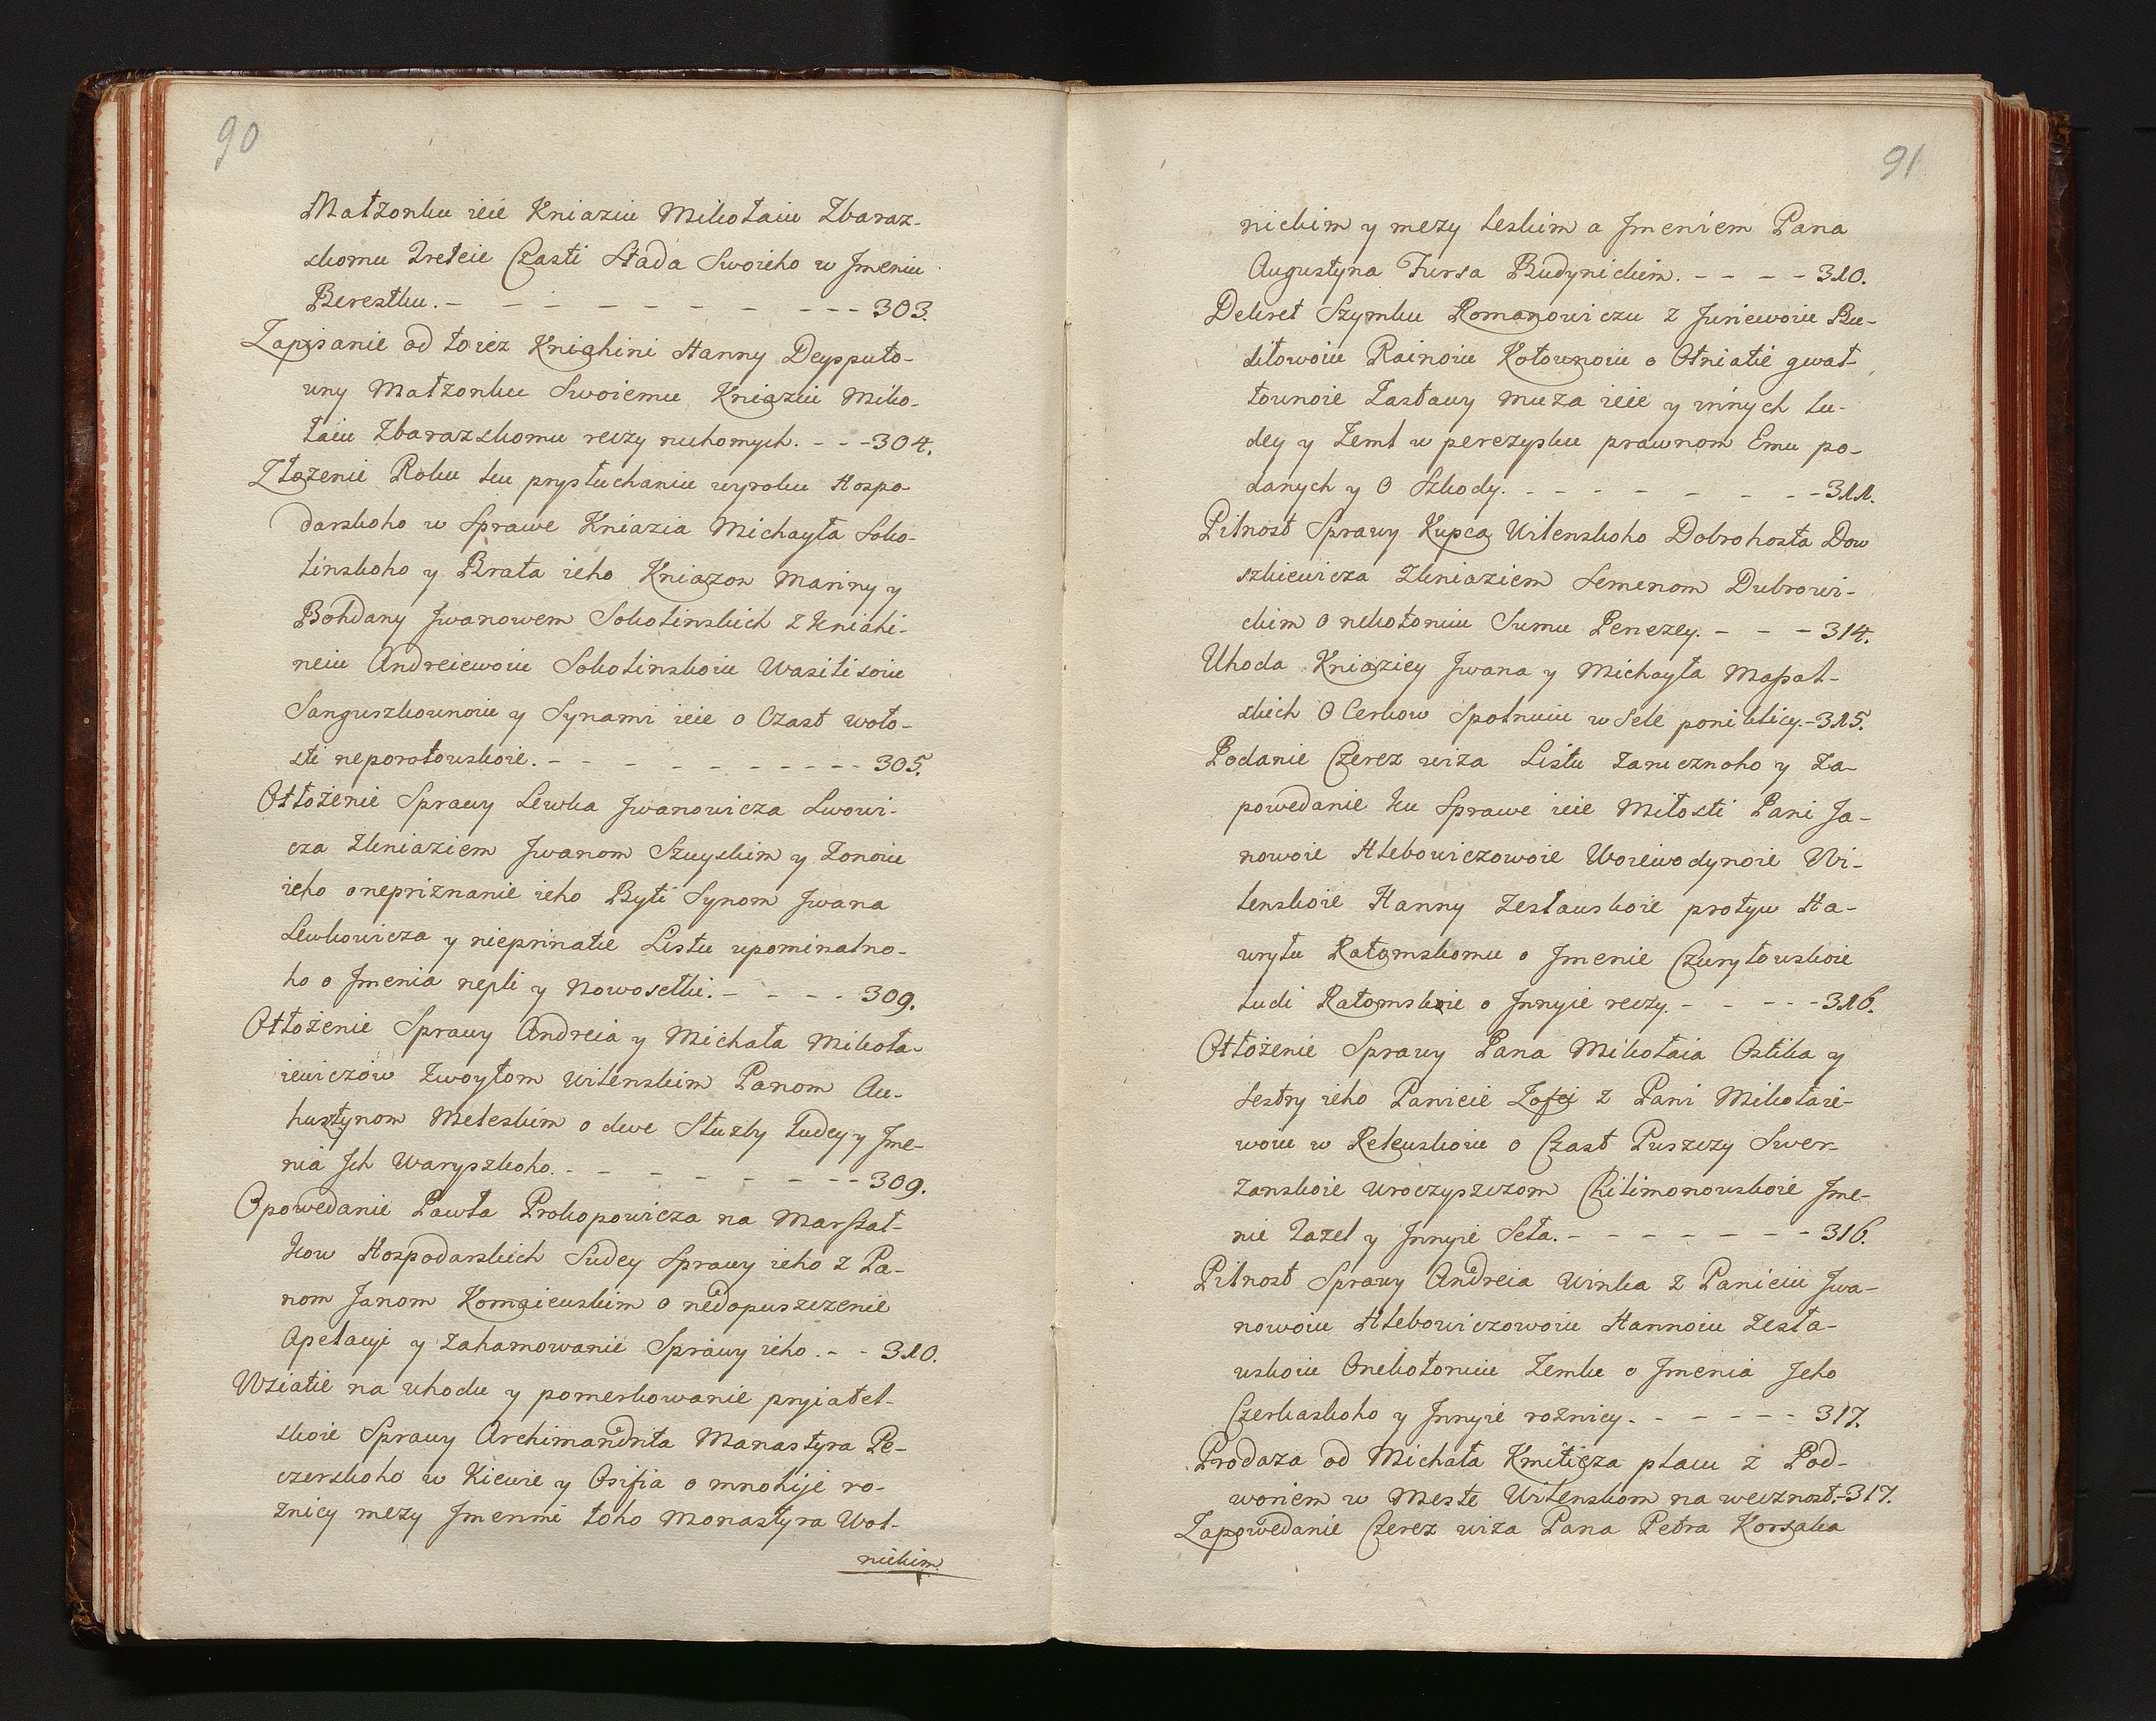 90
Małżonku ieie Kniaziu Mikołaiu Zbaraz-
skomu Treteie Czasti Stada Swoieho w Jmeniu
Berestku. - - - - - - - - - - 303.
Zapisanie od toież Kniahini Hanny Deysputo-
wny Małżonku Swoiemu Kniaziu Miko-
łaiu Zbarazskomu reczy ruchomych. - - - 304.
Złożenie Roku ku prysłuchaniu wyroku Hospo-
darskoho w Sprawe Kniazia Michayła Soko-
linskoho y Brata ieho Kniazon Mariny y
Bohdany Jwanowem Sokolinskich z Kniahi-
neiu Andreiewoiu Sokolinskoiu Wasilisoiu
Sanguszkownoiu y Synami ieie o Czast woło-
sti neporotowskoie. - - - - - - - - - - 305.
Otłożenie Sprawy Lewka Jwanowicza Lwowi-
cza Zkniaziem Jwanom Szuyskim y Żonoiu
ieho o nepriznanie ieho Byti Synom Jwana
Lewkowicza y nieprinatie Listu upominalno-
ho o Jmenia nepli y Nowosełki. - - - - 309.
Otłożenie Sprawy Andreia y Michała Mikoła-
iewiczow Zwoytom wilenskim Panom Au-
hustynom Meleskim o dwe Służby ludey y Jme-
nia Jch Waryszkoho. - - - - - - - - 309.
Opowedanie Pawła Prokopowicza na Marszał-
kow Hospodarskich Sudey Sprawy ieho z Pa-
nom Janom Komaiewskim o nedopuszczenie
Apelacyi y zahamowanie Sprawy ieho. - - 310.
Wziatie na uhodu y pomerkowanie pryiatel-
skoie Sprawy Archimandrita Manastyra Pe-
czerskoho w Kiewie y Osifia o mnohije ro-
żnicy mezy Jmenmi toho Monastyra Wol-
nickim
91
nickim y mezy Leskim a Jmeniem Pana
Augustyna Fursa Budynickim. - - - - 310.
Dekret Szymku Romanowiczu z Juriewoiu Bu-
ditowoiu Rainoiu Kołownoiu o Otniatie gwał-
townoie Zastawy muża ieie y innych lu-
dey y Zeml w perezysku prawnom Emu po-
danych y O Szkody. - - - - - - - - 311.
Pilnost Sprawy Kupca Wilenskoho Dobrohosta Dow
szkiewicza Zkniaziem Semenom Dubrowi-
ckim o nekotoruiu Sumu Penezey. - - - 314.
Uhoda Kniaziey Jwana y Michayła Masal-
skich O Cerkow Spolnuiu w Sele ponikłicy. - 315.
Podanie Czerez wiża Listu zaruczoho y Za-
powedanie ku Sprawe ieie Miłosti Pani Ja-
nowoie Hlebowiczowoie Woiewodynoie Wi-
lenskoie Hanny Zesławskoie protyw Ha-
wryłu Ratomskomu o Jmenie Czuryłowskoie
ludi Ratomskoie o Jnnyie reczy. - - - - - 316.
Otłożenie Sprawy Pana Mikołaia Ostika y
Sestry ieho Panieie Zofei z Pani Mikołaie-
woiu w Rekuskoiu o Czast Puszczy Swer-
zanskoie uroczyszczom Chilimonowskoie Jme-
nie Zazel y Jnnyie Seła. - - - - - - - - 316.
Pilnost Sprawy Andreia Winka z Panieiu Jwa-
nowoiu Hlebowiczowoiu Hannoiu Zesła-
wskoiu Onekotoruiu Zemlu o Jmenia Jeho
Czerkaskoho y Jnnyie rożnicy. - - - - - - 317.
Prodaża od Michała Kmiticza placu z Pod-
woriem w Meste Wilenskom na wecznost. - 317.
Zapowedanie Czerez wiża Pana Petra Korsaka